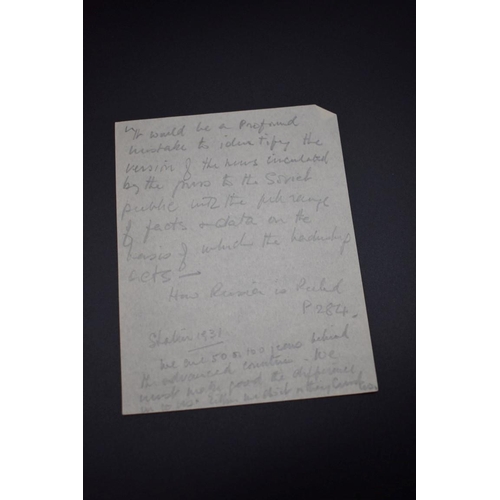 "It would be a profound
mistake to identify the
version of the news inculcated
by the press to the Soviet
public with the full range
of facts & data on the
basis of which the leadership
acts —
How Russia is Ruled
P 284.
Stalin 1931
We are 50 or 100 years behind
the advanced countries. We
must make good the difference
in 10 years. Either we do it or they crush